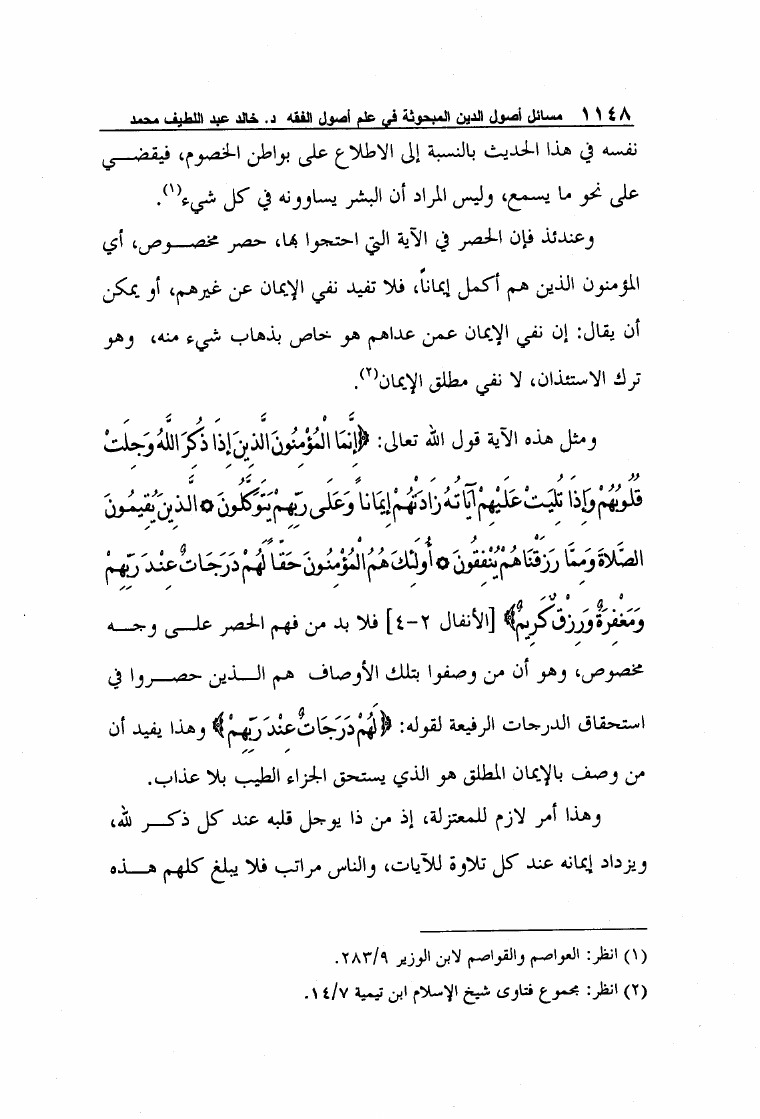 ١١٤٨ مسائل أصول الدين المبحوثة في علم أصول الفقه د. خالد عبد اللطيف محمد
نفسه في هذا الحديث بالنسبة إلى الاطلاع على بواطن الخصوم، فيقضـــي
على نحو ما يسمع، وليس المراد أن البشر يساوونه في كل شيء(١).
وعندئذ فإن الحصر في الآية التي احتجوا بها، حصر مخصـــوص، أي
المؤمنون الذين هم أكمل إيماناً، فلا تفيد نفي الإيمان عن غيرهم، أو يمكن
أن يقال: إن نفي الإيمان عمن عداهم هو خاص بذهاب شيء منه، وهو
ترك الاستئذان، لا نفي مطلق الإيمان(٢).
ومثل هذه الآية قول الله تعالى: ﴿إِنَّمَا الْمُؤْمِنُونَ الَّذِينَ إِذَا ذُكِرَ اللَّهُ وَجِلَتْ
قُلُوبُهُمْ وَإِذَا تُلِيَتْ عَلَيْهِمْ آيَاتُهُ زَادَتْهُمْ إِيمَاناً وَعَلَى رَبِّهِمْ يَتَوَكَّلُونَ ٥ الَّذِينَ يُقِيمُونَ
الصَّلَاةَ وَمِمَّا رَزَقْنَاهُمْ يُنْفِقُونَ ٥ أُولَئِكَ هُمُ الْمُؤْمِنُونَ حَقّاً لَهُمْ دَرَجَاتٌ عِنْدَ رَبِّهِمْ
وَمَغْفِرَةٌ وَرِزْقٌ كَرِيمٌ﴾ [الأنفال ٢-٤] فلا بد من فهم الحصر علـــى وجـــه
مخصوص، وهو أن من وصفوا بتلك الأوصاف هم الـــذين حصـــروا في
استحقاق الدرجات الرفيعة لقوله: ﴿لَهُمْ دَرَجَاتٌ عِنْدَ رَبِّهِمْ﴾ وهذا يفيد أن
من وصف بالإيمان المطلق هو الذي يستحق الجزاء الطيب بلا عذاب.
وهذا أمر لازم للمعتزلة، إذ من ذا يوجل قلبه عند كل ذكـــر لله،
ويزداد إيمانه عند كل تلاوة للآيات، والناس مراتب فلا يبلغ كلهم هـــذه
(١) انظر: العواصم والقواصم لابن الوزير ٢٨٣/٩.
(٢) انظر: مجموع فتاوى شيخ الإسلام ابن تيمية ١٤/٧.